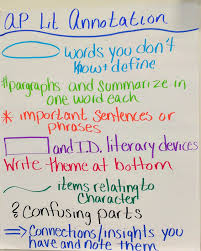 AP Lit Annotation
words you don't
know + define
#paragraphs and summarize in
one word each
* important sentences or
phrases
and I.D. literary devices
Write theme at bottom
items relating to
character
? confusing parts
=> Connections/insights you
have and note them